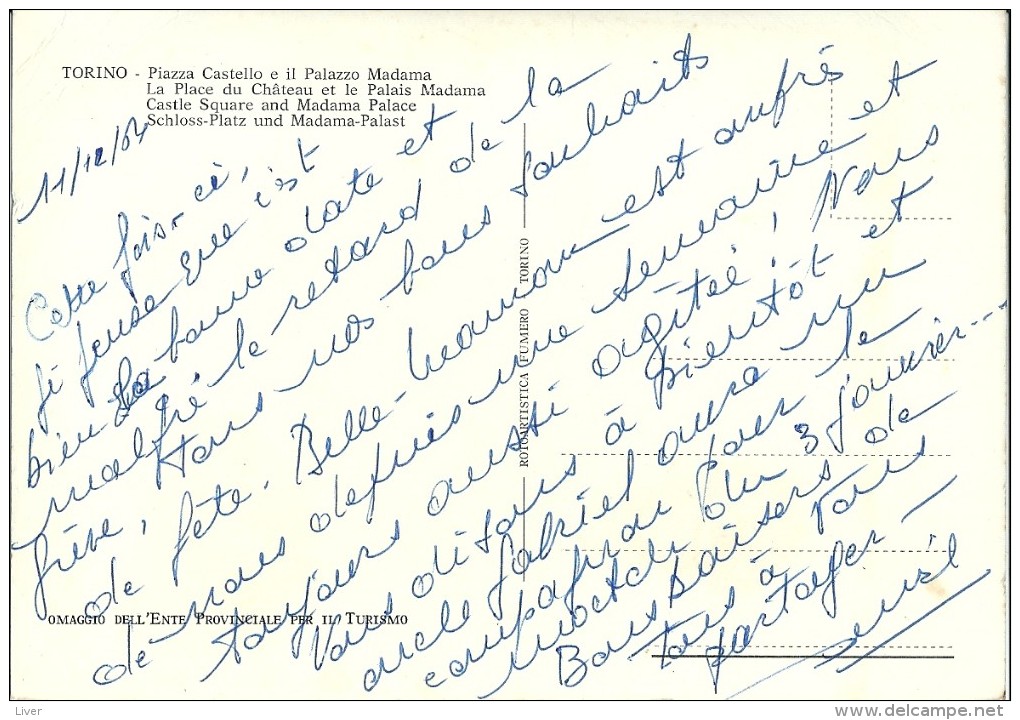 TORINO - Piazza Castello e il Palazzo Madama
La Place du Château et le Palais Madama
Castle Square and Madama Palace
Schloss-Platz und Madama-Palast
11/12/64
Cette fois-ci,
je pense que c'est
bien la bonne date et
malgré le retard de la
grève, tous nos bons souhaits
de fête. Belle-maman est auprès
de nous depuis une semaine et
toujours aussi agitée! Nous
Vous disons à bientôt et
oncle Gabriel aura un
compagnon pour le
match du 3 Janvier...
Bons baisers de
tous à Vous
partager -
ROTOARTISTICA FUMERO TORINO
OMAGGIO DELL'ENTE PROVINCIALE PER IL TURISMO
Liver
www.delcampe.net